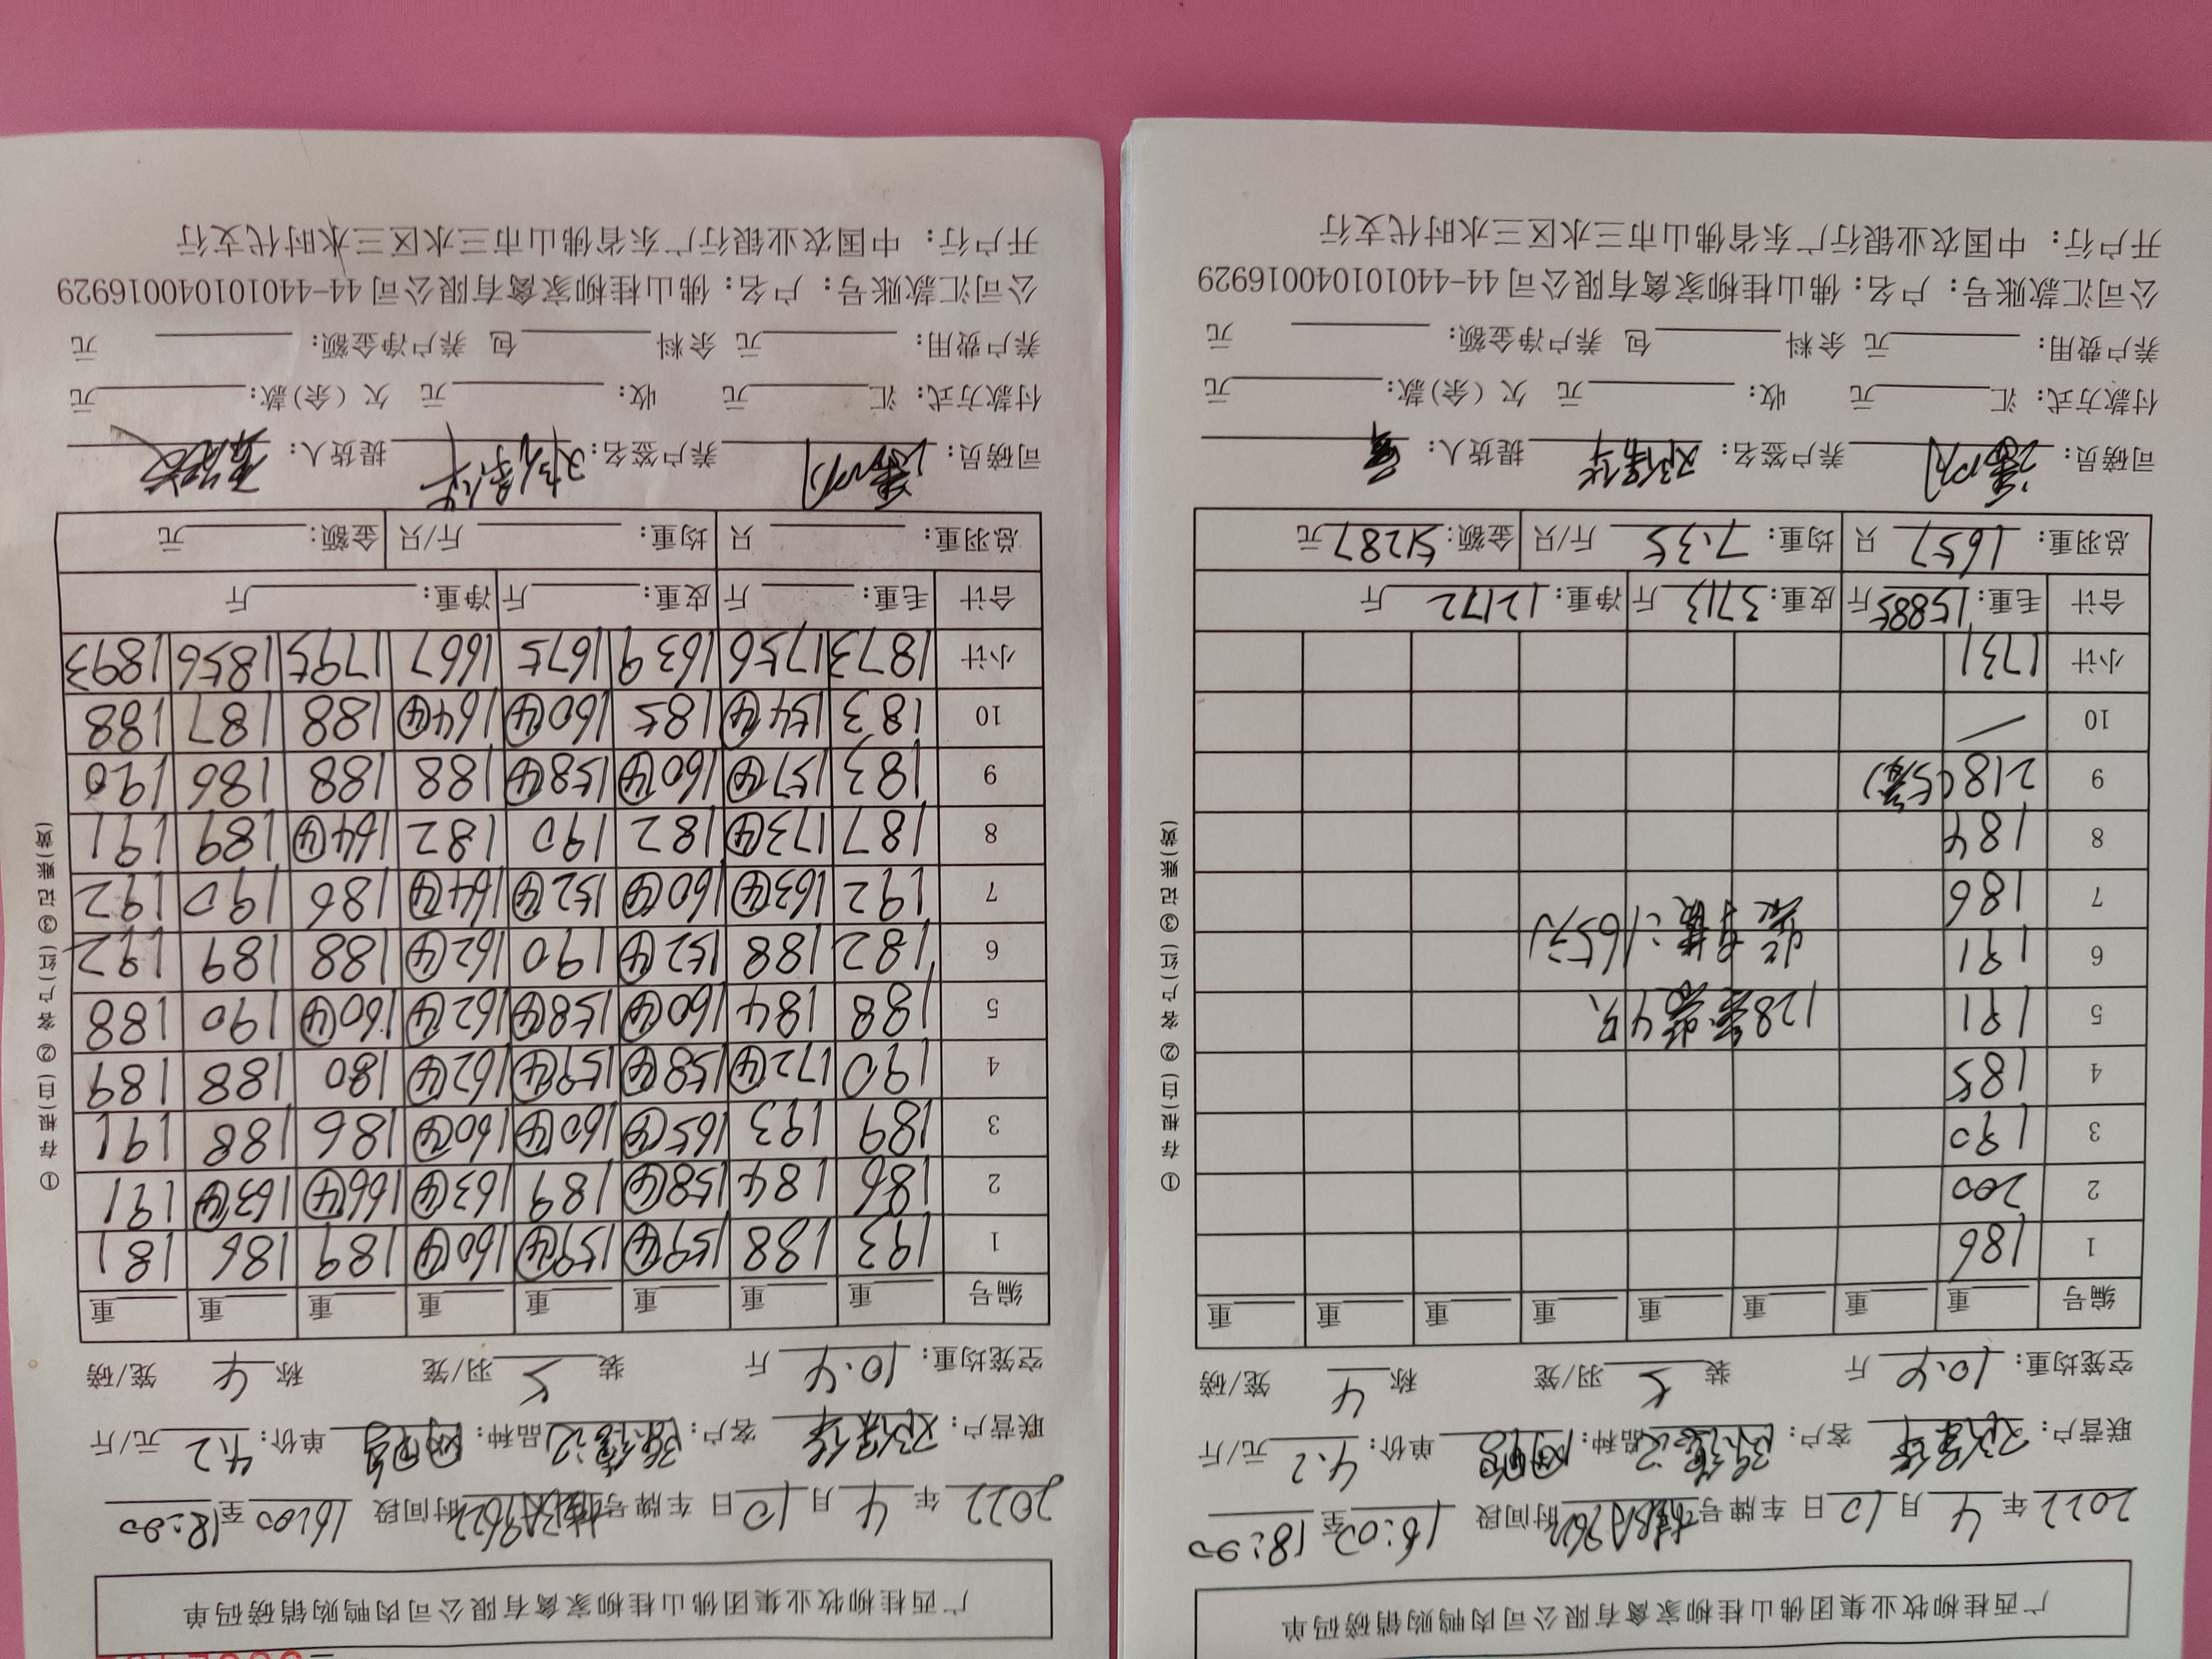 广西桂柳牧业集团佛山桂柳家禽有限公司肉鸭购销磅码单
2022 年 4 月 10 日 车牌号 时间段 16:00 至 18:00
联营户: 客户: 品种: 单价: 4.2 元/斤
空笼均重: 10.4 斤 装 5 羽/笼 称 4 笼/磅
编号 重 重 重 重 重 重 重 重
1 186
2 200
3 190
4 185
5 191 128 4只
6 191
7 186
8 184
9 218(5笼)
10 /
小计 1731
合计 毛重: 15885 斤 皮重: 3713 斤 净重: 12172 斤
总羽重: 1657 只 均重: 7.35 斤/只 金额: 51287 元
司磅员: 养户签名: 提货人:
付款方式: 汇 元 收: 元 欠(余)款: 元
养户费用: 元 余料 包 养户净金额: 元
公司汇款账号: 户名: 佛山桂柳家禽有限公司 44-440101040016929
开户行: 中国农业银行广东省佛山市三水区三水时代支行
①存根(白) ②客户(红) ③记账(黄)
广西桂柳牧业集团佛山桂柳家禽有限公司肉鸭购销磅码单
2022 年 4 月 10 日 车牌号 时间段 16:00 至 18:00
联营户: 客户: 品种: 单价: 4.2 元/斤
空笼均重: 10.4 斤 装 5 羽/笼 称 4 笼/磅
编号 重 重 重 重 重 重 重 重
1 193 188 159④ 159④ 160④ 189 186 181
2 186 184 158④ 189 163④ 166④ 163④ 191
3 189 193 165④ 160④ 160④ 186 188 191
4 190 172④ 158④ 159④ 162④ 180 188 189
5 188 184 160④ 158④ 162④ 160④ 190 188
6 182 188 152④ 190 162④ 188 189 192
7 192 163④ 160④ 152④ 164④ 186 190 192
8 187 173④ 182 190 182 164④ 189 191
9 183 157④ 160④ 158④ 188 188 186 190
10 183 154④ 185 160④ 164④ 188 187 188
小计 1873 1756 1639 1675 1667 1795 1856 1893
合计 毛重: 斤 皮重: 斤 净重: 斤
总羽重: 只 均重: 斤/只 金额: 元
司磅员: 养户签名: 提货人:
付款方式: 汇 元 收: 元 欠(余)款: 元
养户费用: 元 余料 包 养户净金额: 元
公司汇款账号: 户名: 佛山桂柳家禽有限公司 44-440101040016929
开户行: 中国农业银行广东省佛山市三水区三水时代支行
①存根(白) ②客户(红) ③记账(黄)